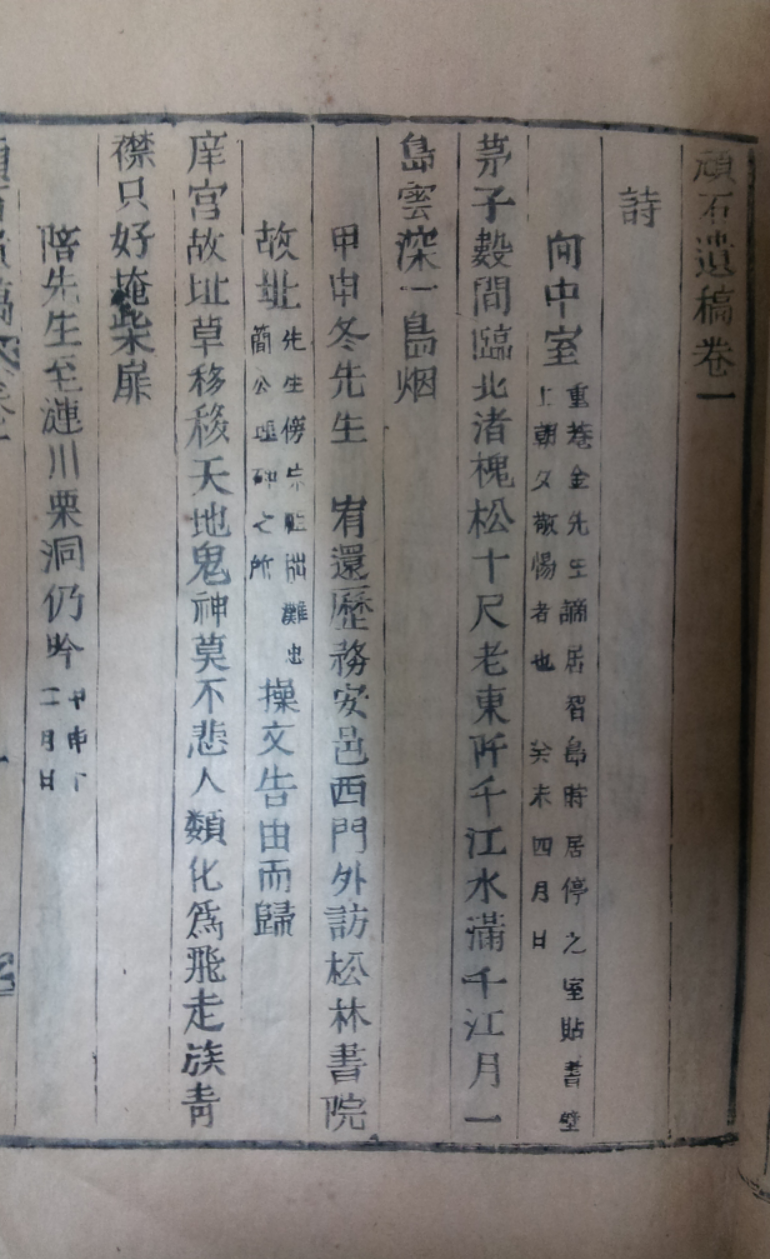 頑石遺稿卷一
詩
向中室
重菴金先生謫居智島時居停之室貼書壁
上朝夕敬惕者也 癸未四月日
茅子數間臨北渚槐松十尺老東阡千江水滿千江月一
島雲深一島烟
甲申冬先生 宥還歷務安邑西門外訪松林書院
故址
先生傍灘忠
簡公碑之所
操文告由而歸
庠宮故址草移移天地鬼神莫不悲人類化爲飛走族靑
襟只好掩柴扉
陪先生至漣川栗洞仍吟
甲申十
二月日